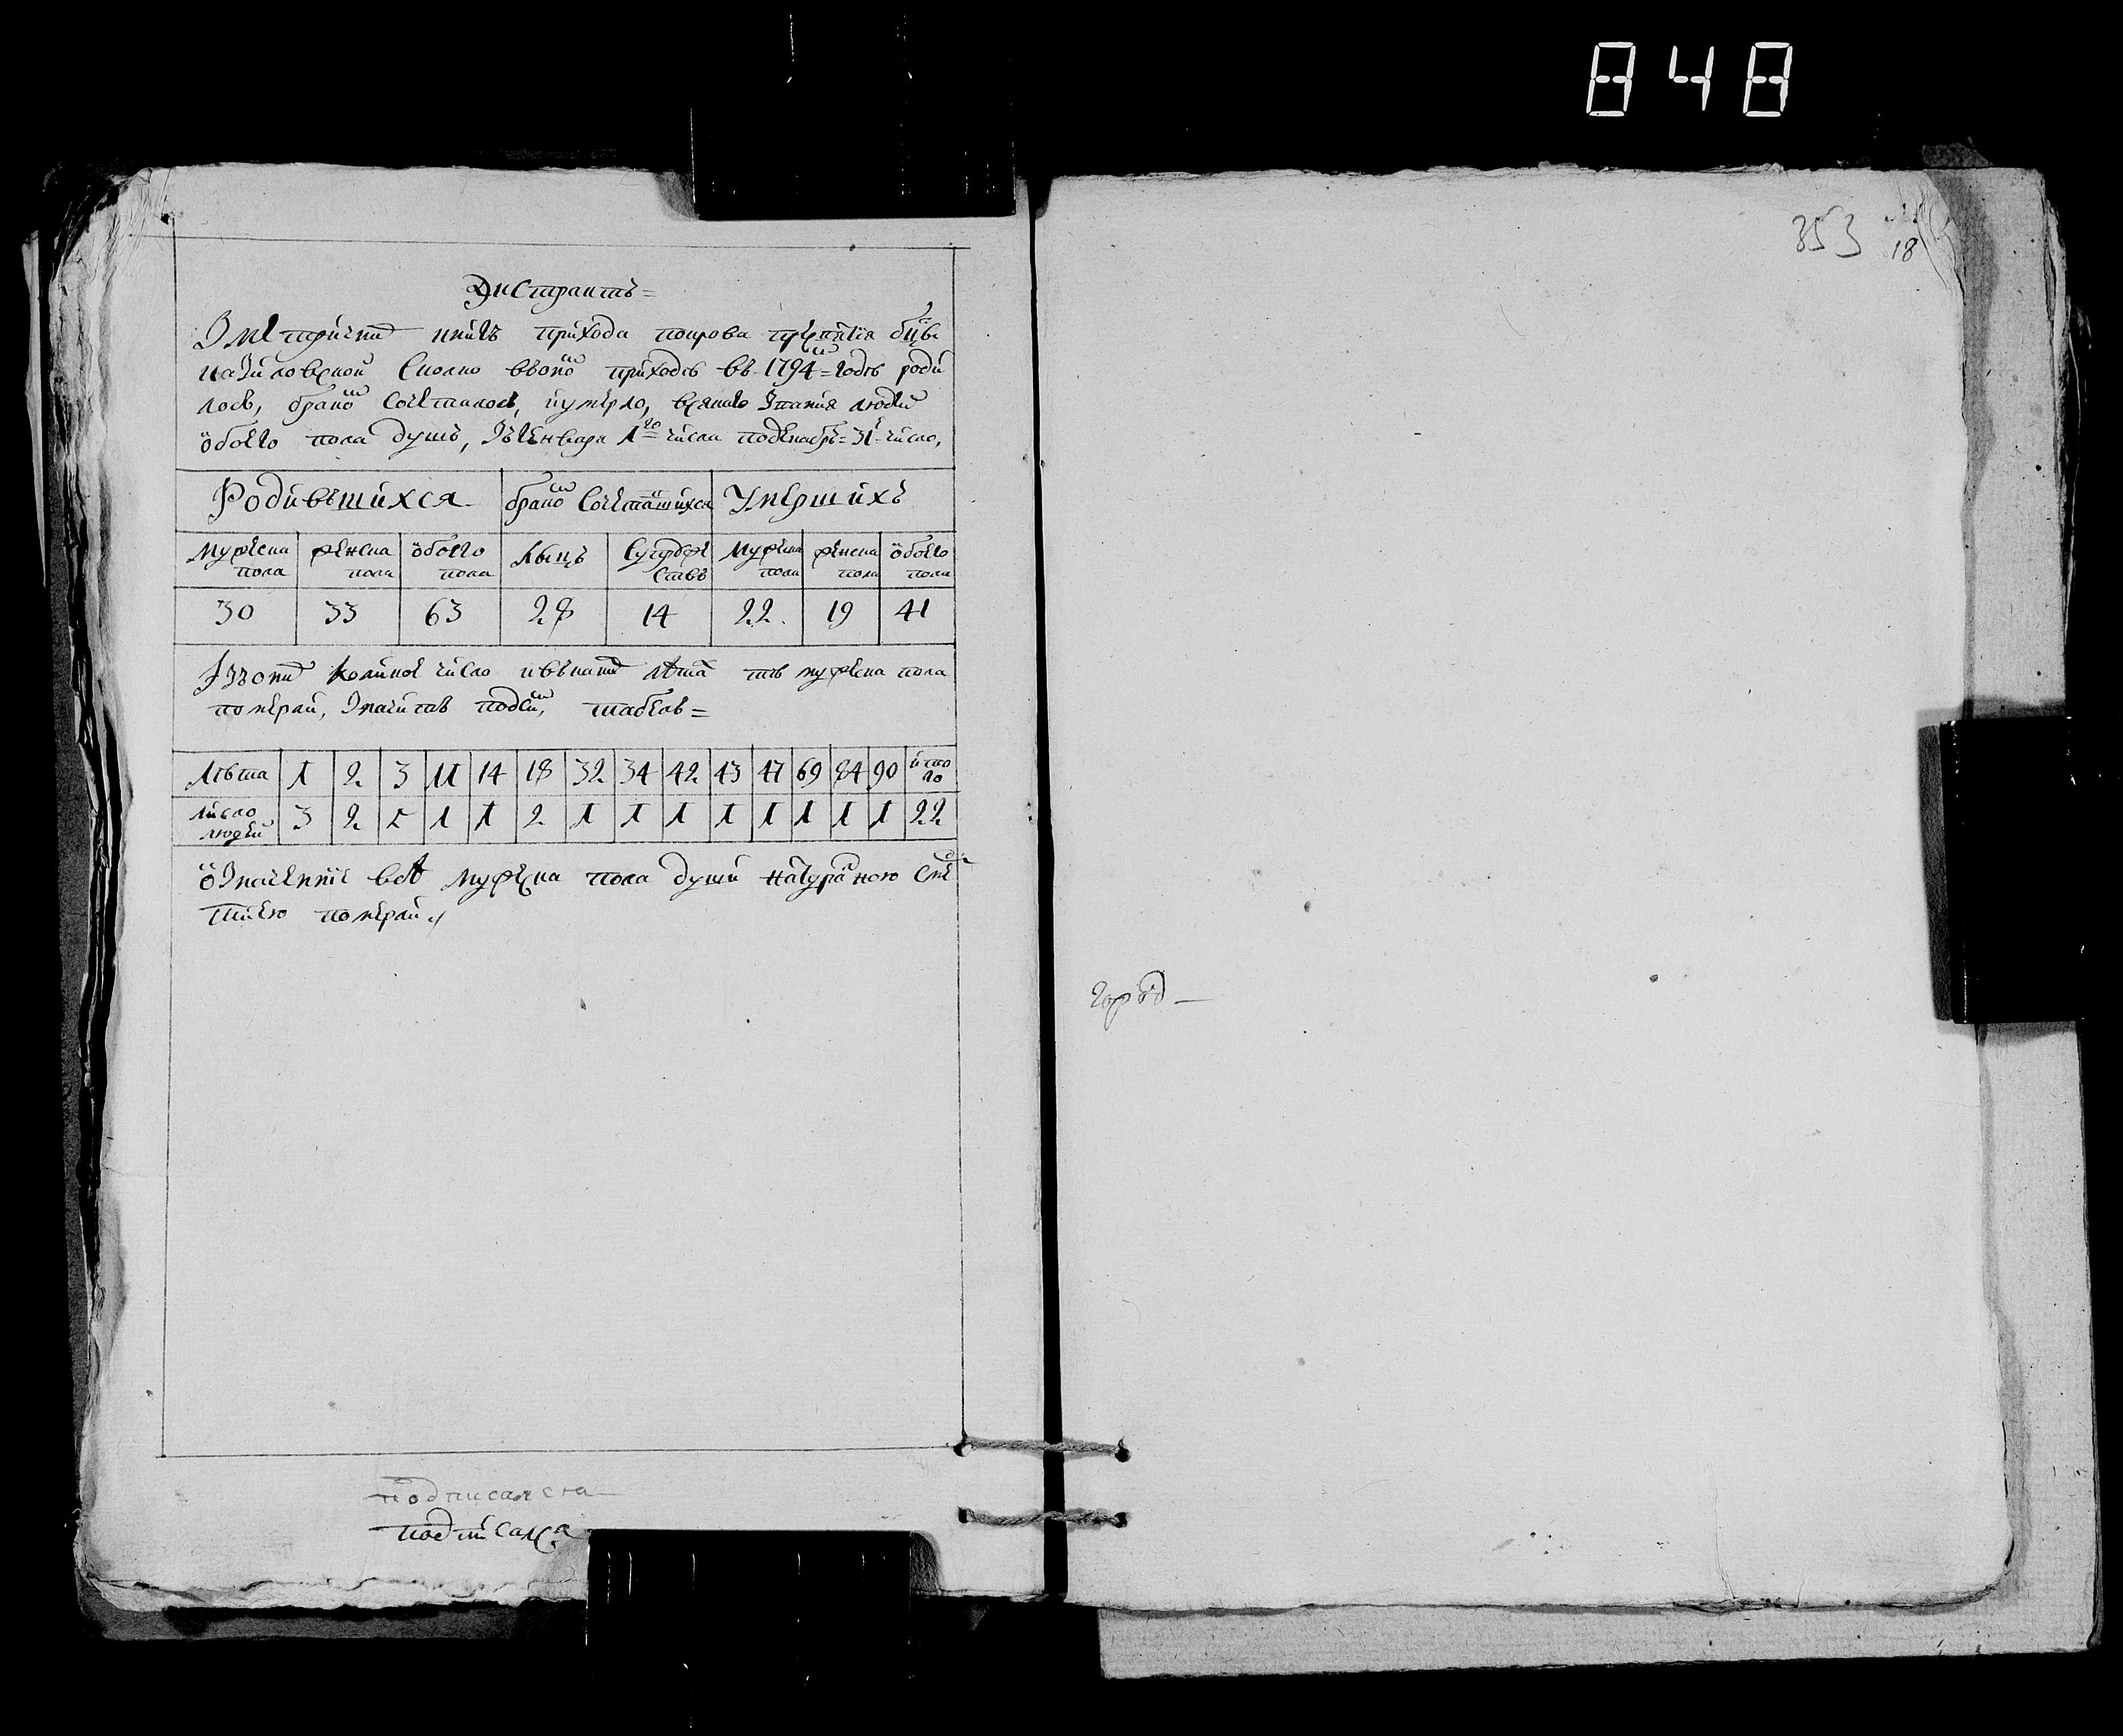 848
353
18
Экстрактъ =
Зметричних книгъ прихода покрова пресвятия бцы
сколко вономъ приходѣ въ 1794м = годѣ роди
лось, бракомъ сочеталось, иумерло, всякаго званія людей
обоего пола душъ, Зъ Генваря 1го числа подекабръ = 31е число,
Родившихся бракомъ Сочетавшихся Умершихъ
Мужеска пола женска пола обоего пола лыцъ Супруже ствъ Мужеска пола женска пола обоего пола
30 33 63 28 14 22. 19 41
Ізъоних коликое число ивъкаких лѣтахъ тѣ мужеска пола
померли, Значитъ подсим, табель =
Лѣта 1 2 3 11 14 18 32 34 42 43 47 69 84 90 итого
Число людей 3 2 5 1 1 2 1 1 1 1 1 1 1 1 22
означенніе всѣ мужеска пола души натуралною сме
ртию померли
город —
подписался
подписался